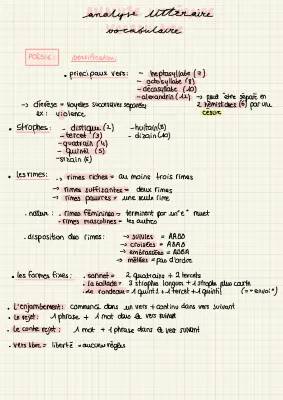 analyse littéraire
vocabulaire
POÉSIE: versification
• principaux vers: - heptasyllabe (7)
- octosyllabe (8)
- décasyllabe (10)
- alexandrin (12) → peut être séparé en
2 hémistiches (6) par une
césure
→ diérèse = voyelles successives séparées
ex: violence
• Strophes: - distique (2) - huitain (8)
- tercet (3) - dizain (10)
- quatrain (4)
- quintil (5)
- sizain (6)
• les rimes: → rimes riches = au moins trois rimes
→ rimes suffisantes = deux rimes
→ rimes pauvres = une seule rime
- nature: • rimes féminines → terminent par un "e" muet
• rimes masculines = les autres
- disposition des rimes: → suivies = AABB
→ croisées = ABAB
→ embrassées = ABBA
→ mêlées = pas d'ordre
• les formes fixes: • sonnet = 2 quatrains + 2 tercets
• la ballade = 3 strophes longues + 1 strophe plus courte
• le rondeau = 1 quintil + 1 tercet + 1 quintil (= "envoi")
• L'enjambement: commence dans un vers + continu dans vers suivant
• Le rejet: 1 phrase + 1 mot dans le vers suivant
• Le contre rejet: 1 mot + 1 phrase dans le vers suivant
• vers libre = liberté = aucune règles